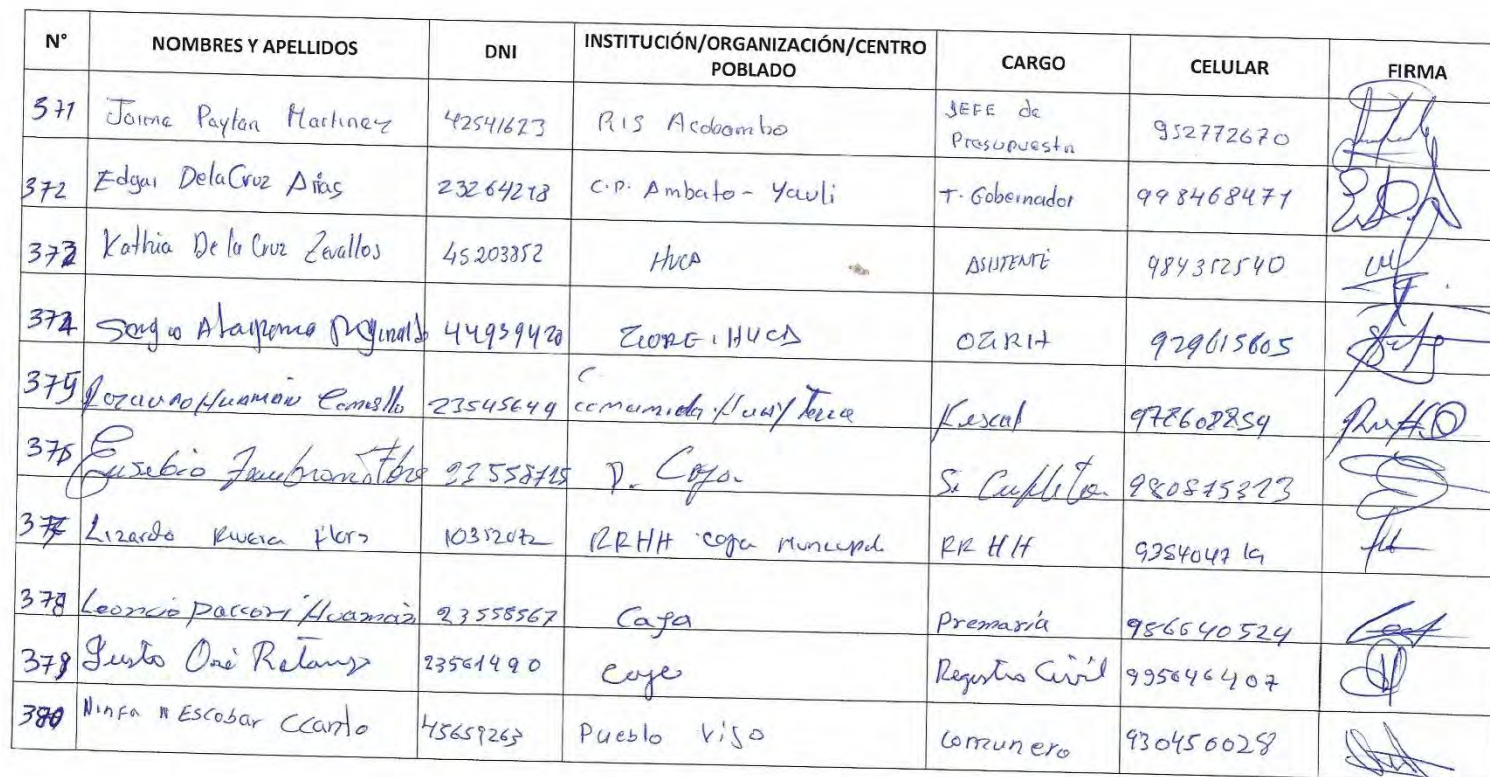 N° NOMBRES Y APELLIDOS DNI INSTITUCIÓN/ORGANIZACIÓN/CENTRO POBLADO CARGO CELULAR FIRMA
371 Jaime Paytan Martinez 42541623 RIS Acobamba JEFE de Presupuesto 952772670
372 Edgar DelaCruz Arias 23264218 C.P. Ambato - Yauli T. Gobernador 998468471
373 Kathia De la Cruz Zevallos 45203852 HVCA ASISTENTE 984352540
374 Sergio 44939420 GORE.HVCA 929615605
375 Huamán 23545649 978608859
376 Eusebio 23558715 980875323
377 Lizardo Rivera Flors 10352072 RRHH RRHH 935404719
378 Leoncio Paccori Huamán 23558567 Caja Premaria 956640524
379 Justo Oré 23561490 Caja Registro Civil 995646407
380 Ninfa Escobar Ccanto 45659263 Pueblo Vijo comunero 930456028